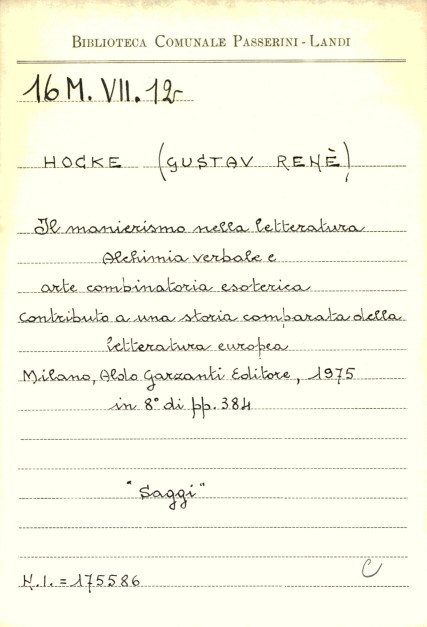 BIBLIOTECA COMUNALE PASSERINI - LANDI
16 M. VII. 12
HOCKE (GUSTAV RENÈ)
Il manierismo nella letteratura
Alchimia verbale e
arte combinatoria esoterica
contributo a una storia comparata della
letteratura europea
Milano, Aldo Garzanti Editore, 1975
in 8° di pp. 384
"Saggi"
N.I. = 175586
C